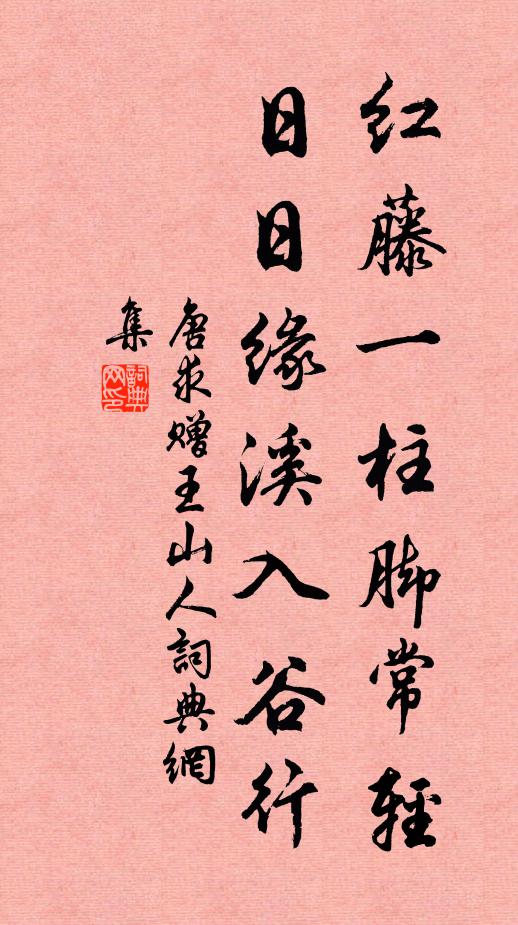 红藤一柱脚常轻
日日缘溪入谷行
唐求赠王山人詞典網
集
詞典网印